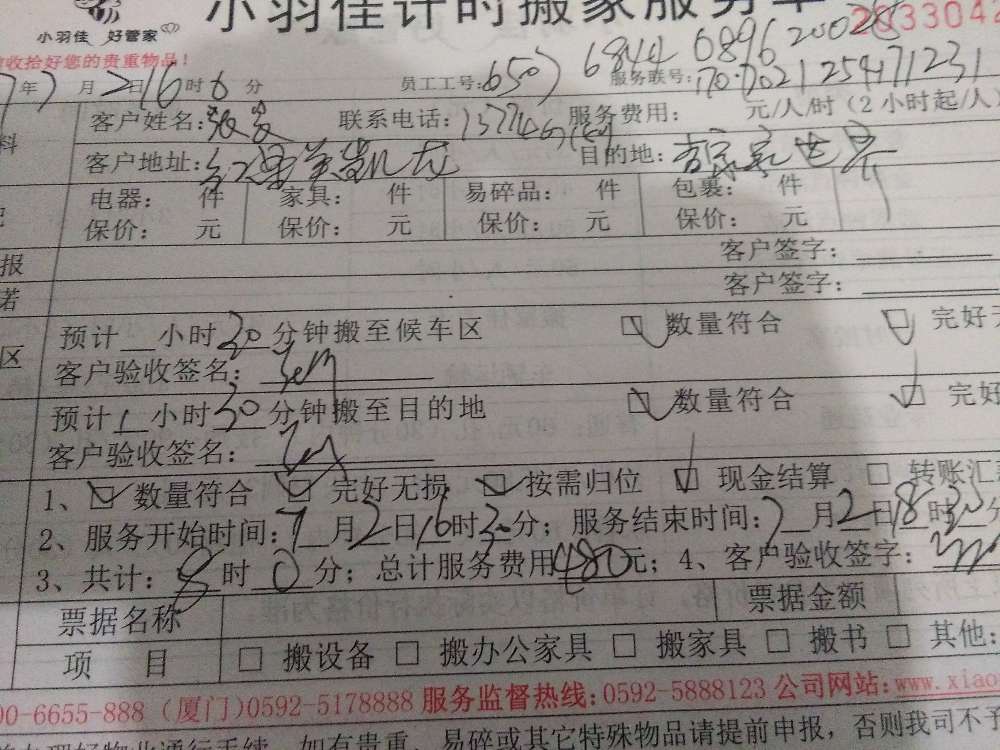 小羽佳计时搬家服务单
小羽佳 好管家
收拾好您的贵重物品！
2033042
年7月2日16时6分 员工工号：6507 6844 6896
服务联号：170702125471231
客户姓名： 联系电话： 服务费用： 元/人/时（2小时起/人）
客户地址：红星美凯龙 目的地：世界
电器： 件 家具： 件 易碎品： 件 包裹： 件
保价： 元 保价： 元 保价： 元 保价： 元
报 客户签字：
若 客户签字：
预计 小时30分钟搬至候车区 数量符合 完好
区 客户验收签名：
预计1小时30分钟搬至目的地 数量符合 完好
客户验收签名：
1、 数量符合 完好无损 按需归位 现金结算 转账汇
2、服务开始时间：7月2日16时30分；服务结束时间：7月2日18时33分
3、共计：8时0分；总计服务费用480元；4、客户验收签字：
票据名称 票据金额
项 目 搬设备 搬办公家具 搬家具 搬书 其他：
00-6655-888（厦门）0592-5178888 服务监督热线：0592-5888123 公司网站：www.xiao
办理好物业通行手续，如有贵重、易碎或其它特殊物品请提前申报，否则我司不予